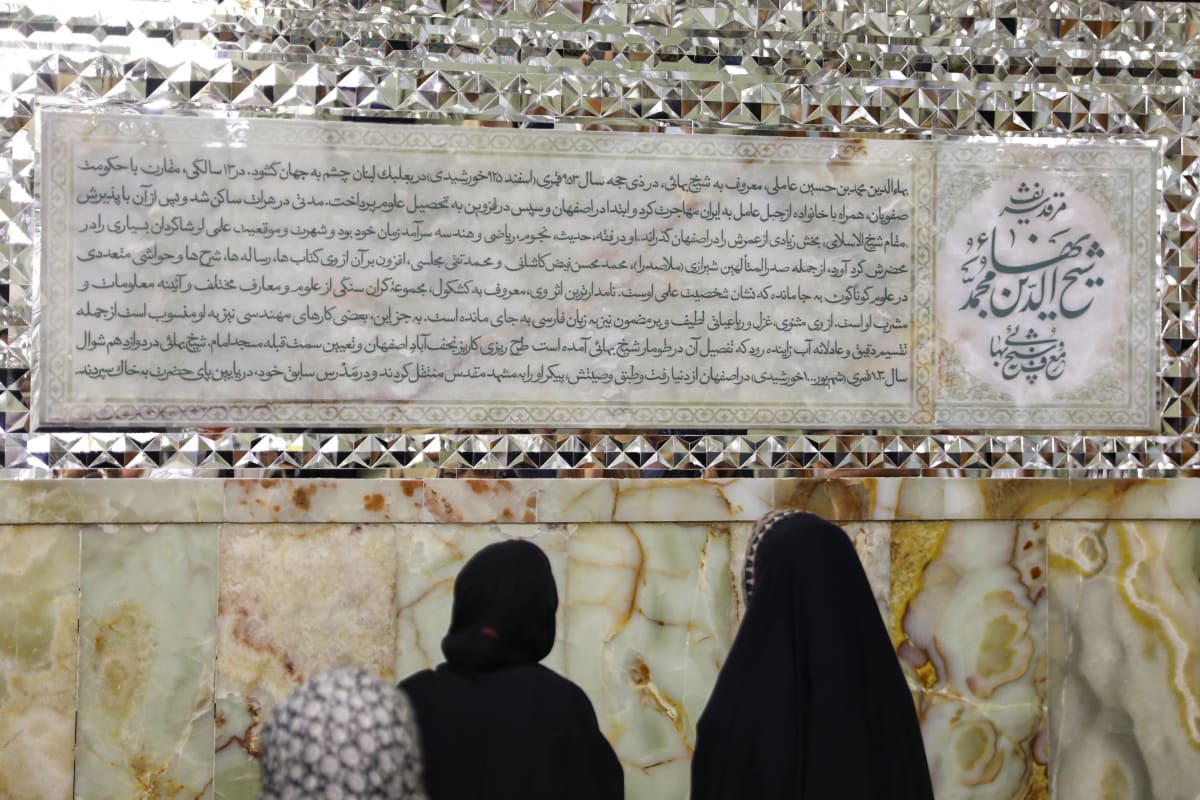 مرقد شریف
شیخ بهاءالدین محمد
معروف به شیخ بهائی
بهاءالدین محمد بن حسین عاملی، معروف به شیخ بهائی، در ذی حجه سال ۹۵۳ قمری (اسفند ۹۲۵ خورشیدی) در بعلبک لبنان چشم به جهان گشود. در ۱۳ سالگی، مقارن با حکومت
صفویان، همراه با خانواده از جبل عامل به ایران مهاجرت کرد و ابتدا در اصفهان و سپس در قزوین به تحصیل علوم پرداخت. مدتی در هرات ساکن شد و پس از آن با پذیرش
مقام شیخ الاسلامی، بخش زیادی از عمرش را در اصفهان گذراند. او در فقه، حدیث، نجوم، ریاضی و هندسه سرآمد زمان خود بود و شهرت و موقعیت علمی او شاگردان بسیاری را در
محضرش گرد آورد، از جمله صدرالمتألهین شیرازی (ملاصدرا)، محمد محسن فیض کاشانی و محمد تقی مجلسی، افزون بر آن از وی کتاب‌ها، رساله‌ها، شرح‌ها و حواشی متعددی
در علوم گوناگون به جا مانده که نشان شخصیت علمی اوست. نامدارترین اثر وی، معروف به کشکول، مجموعهٔ گران سنگی از علوم و معارف مختلف و آئینه معلومات و
مشرب او است. از وی مثنوی، غزل و رباعیاتی لطیف و پر مضمون نیز به زبان فارسی به جای مانده است. به جز این، بعضی کارهای مهندسی نیز به او منسوب است از جمله
تقسیم دقیق و عادلانه آب زاینده رود که تفصیل آن در طومار شیخ بهائی آمده است طرح ریزی کاریز نجف آباد اصفهان و تعیین سمت قبله مسجد امام. شیخ بهائی در دوازدهم شوال
سال ۱۰۳۰ قمری (شهریور ۱۰۰۰ خورشیدی) در اصفهان از دنیا رفت و طبق وصیتش، پیکر او را به مشهد مقدس منتقل کردند و در مَدْرَس سابق خود، در پایین پای حضرت به خاک سپردند.